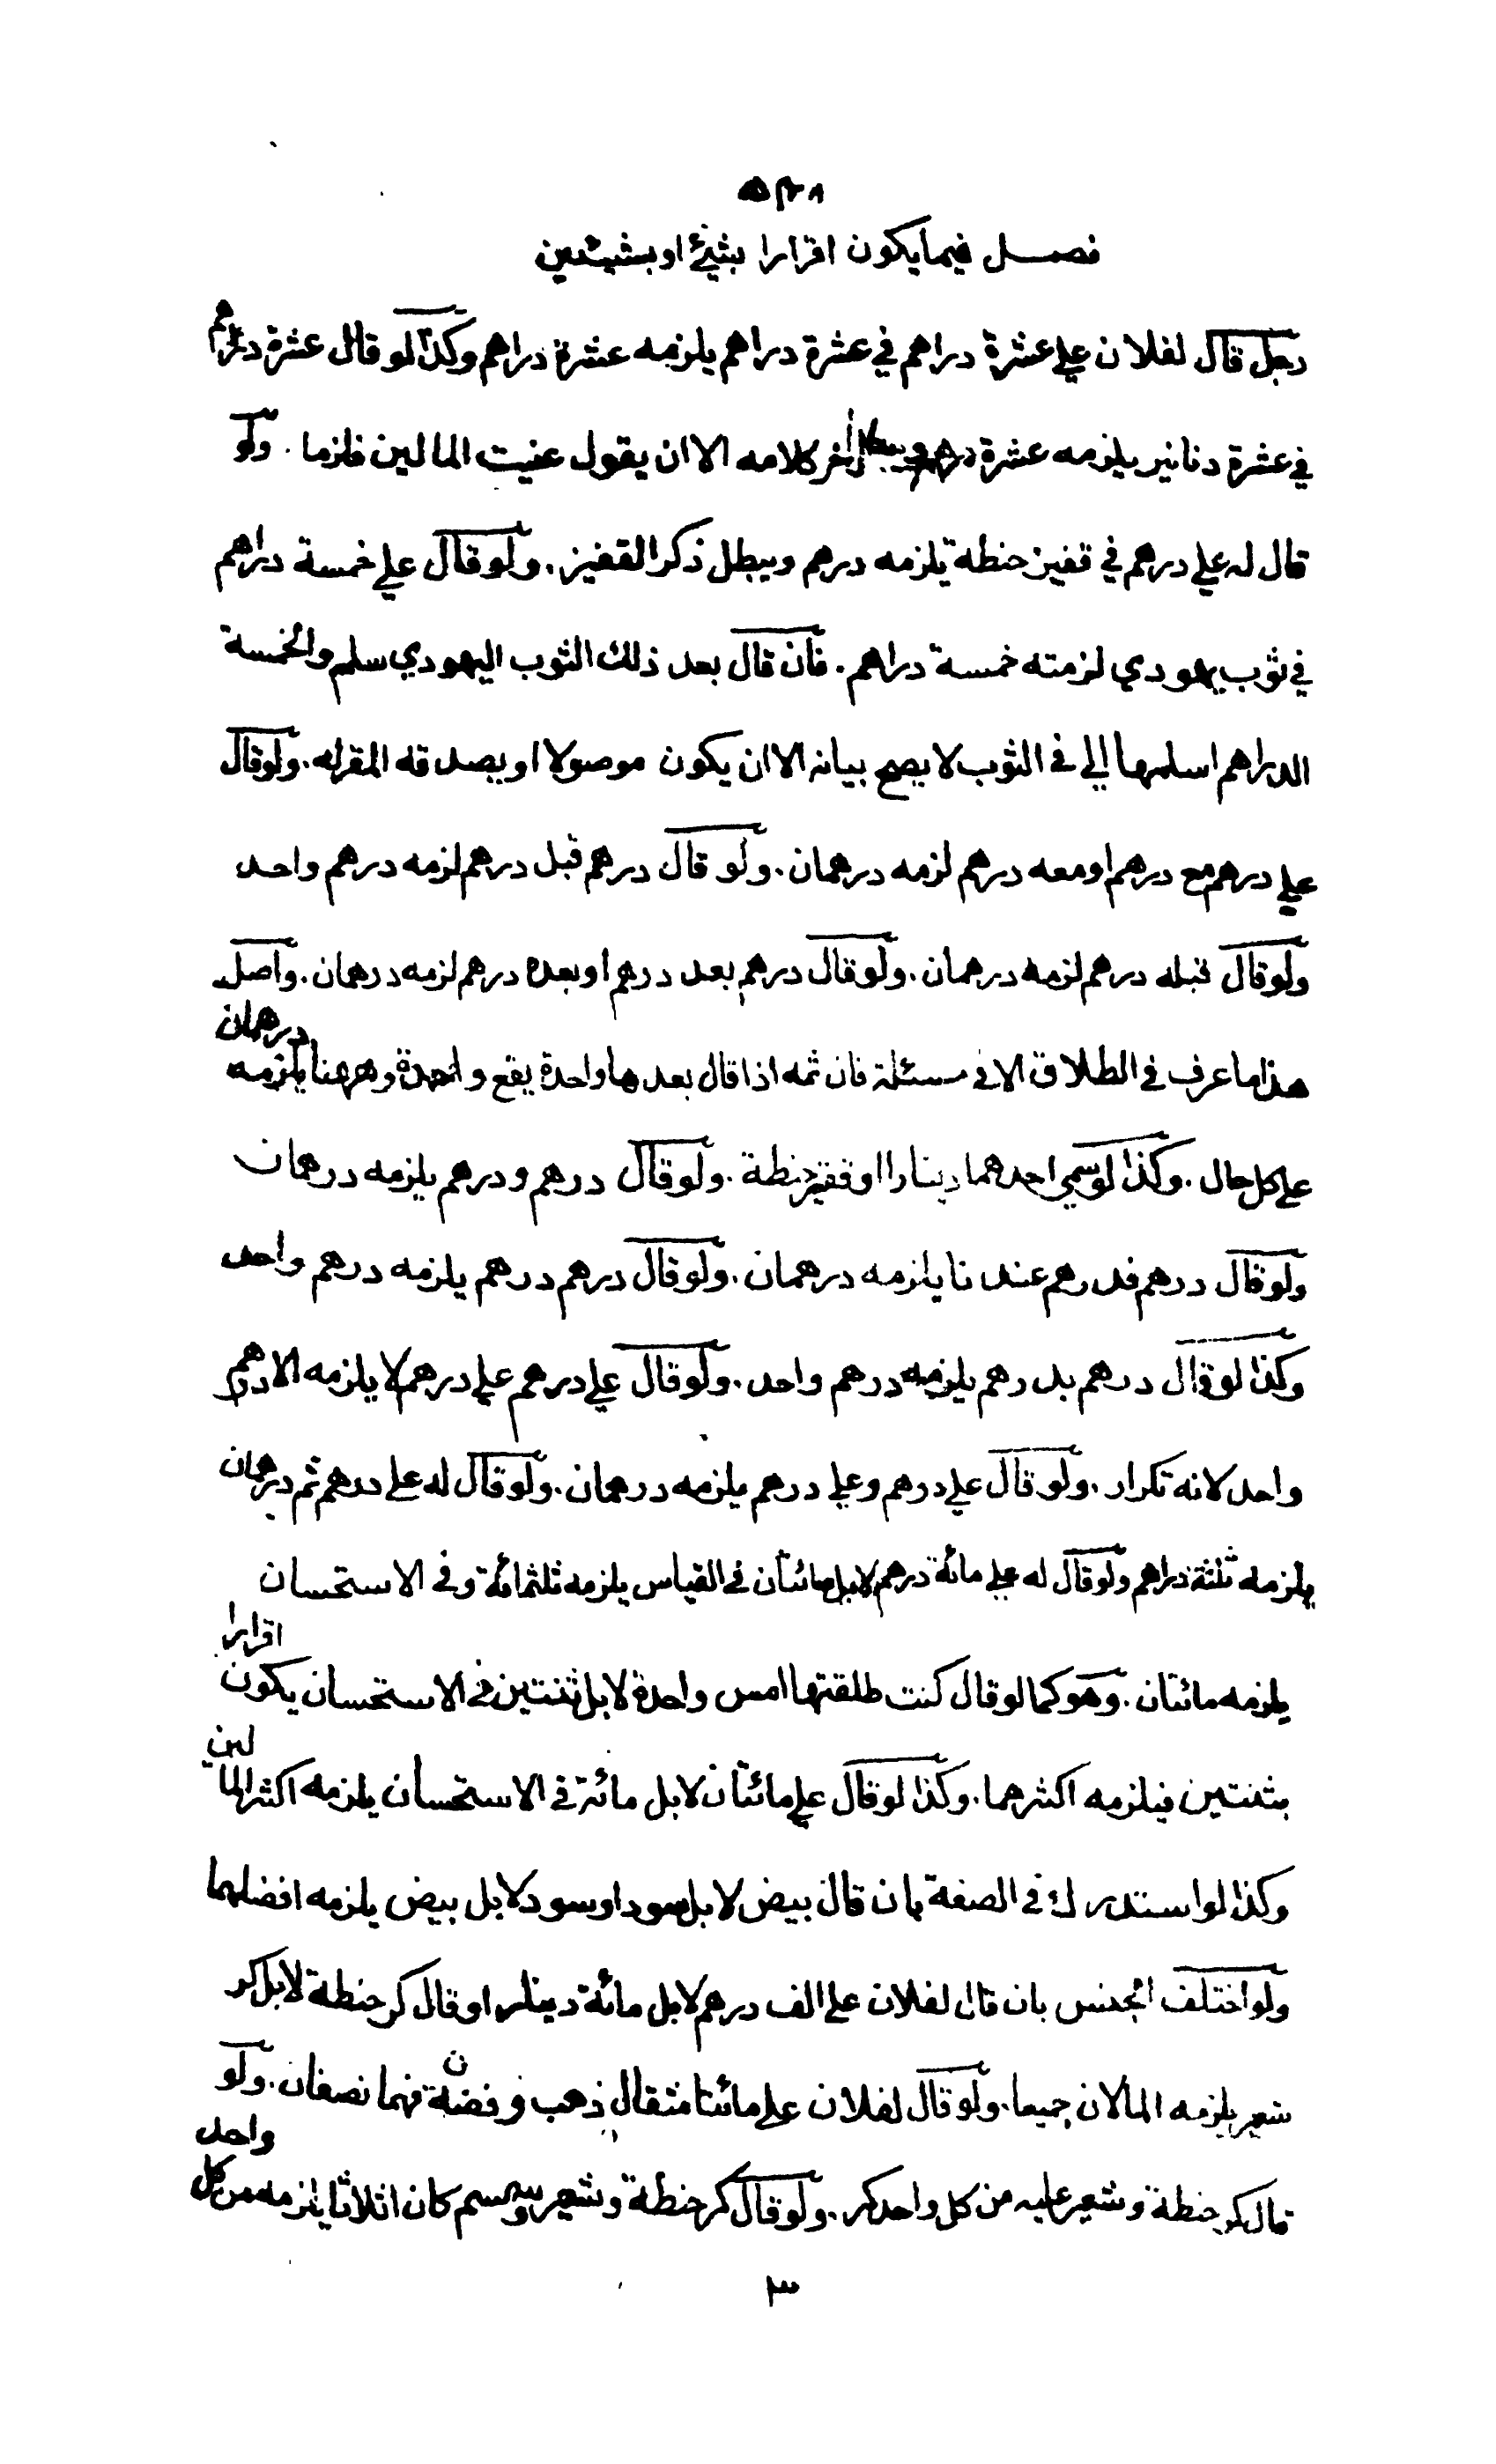 فصل فيما يكون اقرارا بشيئ او بشيئين
رجل قال لفلان علي عشرة دراهم في عشرة دراهم يلزمه عشرة دراهم وكذا لو قال عشرة دراهم
في عشرة دنانير يلزمه عشرة دراهم ويبطل اخر كلامه الا ان يقول عنيت المالين فلزما . ولو
قال له علي درهم في قفيز حنطة يلزمه درهم ويبطل ذكر القفيز . ولو قال علي خمسة دراهم
في ثوب يهودي لزمته خمسة دراهم . فان قال بعد ذلك الثوب اليهودي سلم والخمسة
الدراهم اسلمها الي في الثوب لا يصح بيانه الا ان يكون موصولا او يصدقه المقر له . ولو قال
علي درهم مع درهم او معه درهم لزمه درهمان . ولو قال درهم قبل درهم لزمه درهم واحد
ولو قال قبله درهم لزمه درهمان . ولو قال درهم بعد درهم او بعده درهم لزمه درهمان . واصل
هذا ما عرف في الطلاق الا في مسئلة فان ثمه اذا قال بعدها واحدة يقع واحدة وههنا يلزمه درهمان
على كل حال . وكذا لو سمي احدهما دينارا او قفيز حنطة . ولو قال درهم ودرهم يلزمه درهمان
ولو قال درهم فدرهم عندنا يلزمه درهمان . ولو قال درهم درهم يلزمه درهم واحد
وكذا لو قال درهم بدرهم يلزمه درهم واحد . ولو قال علي درهم علي درهم لا يلزمه الا درهم
واحد لانه تكرار . ولو قال علي درهم وعلي درهم يلزمه درهمان . ولو قال له علي درهم ثم درهمان
يلزمه ثلثة دراهم ولو قال له علي مائة درهم لا بل مائتان في القياس يلزمه ثلثمائة وفي الاستحسان
يلزمه مائتان . وهو كما لو قال كنت طلقتها امس واحدة لا بل ثنتين في الاستحسان يكون اقرارا
بثنتين فيلزمه اكثرهما . وكذا لو قال علي مائتان لا بل مائة في الاستحسان يلزمه اكثر المالين
وكذا لو استدرك في الصفة بان قال بيض لا بل سود او سود لا بل بيض يلزمه افضلهما
ولو اختلف الجنس بان قال لفلان علي الف درهم لا بل مائة دينار او قال كر حنطة لا بل كر
شعير يلزمه المالان جميعا . ولو قال لفلان علي مائتا مثقال ذهب وفضة فهما نصفان . ولو
قال كر حنطة وشعير عليه من كل واحد كر . ولو قال كر حنطة وشعير وسمسم كان اثلاثا يلزمه من كل واحد
٣